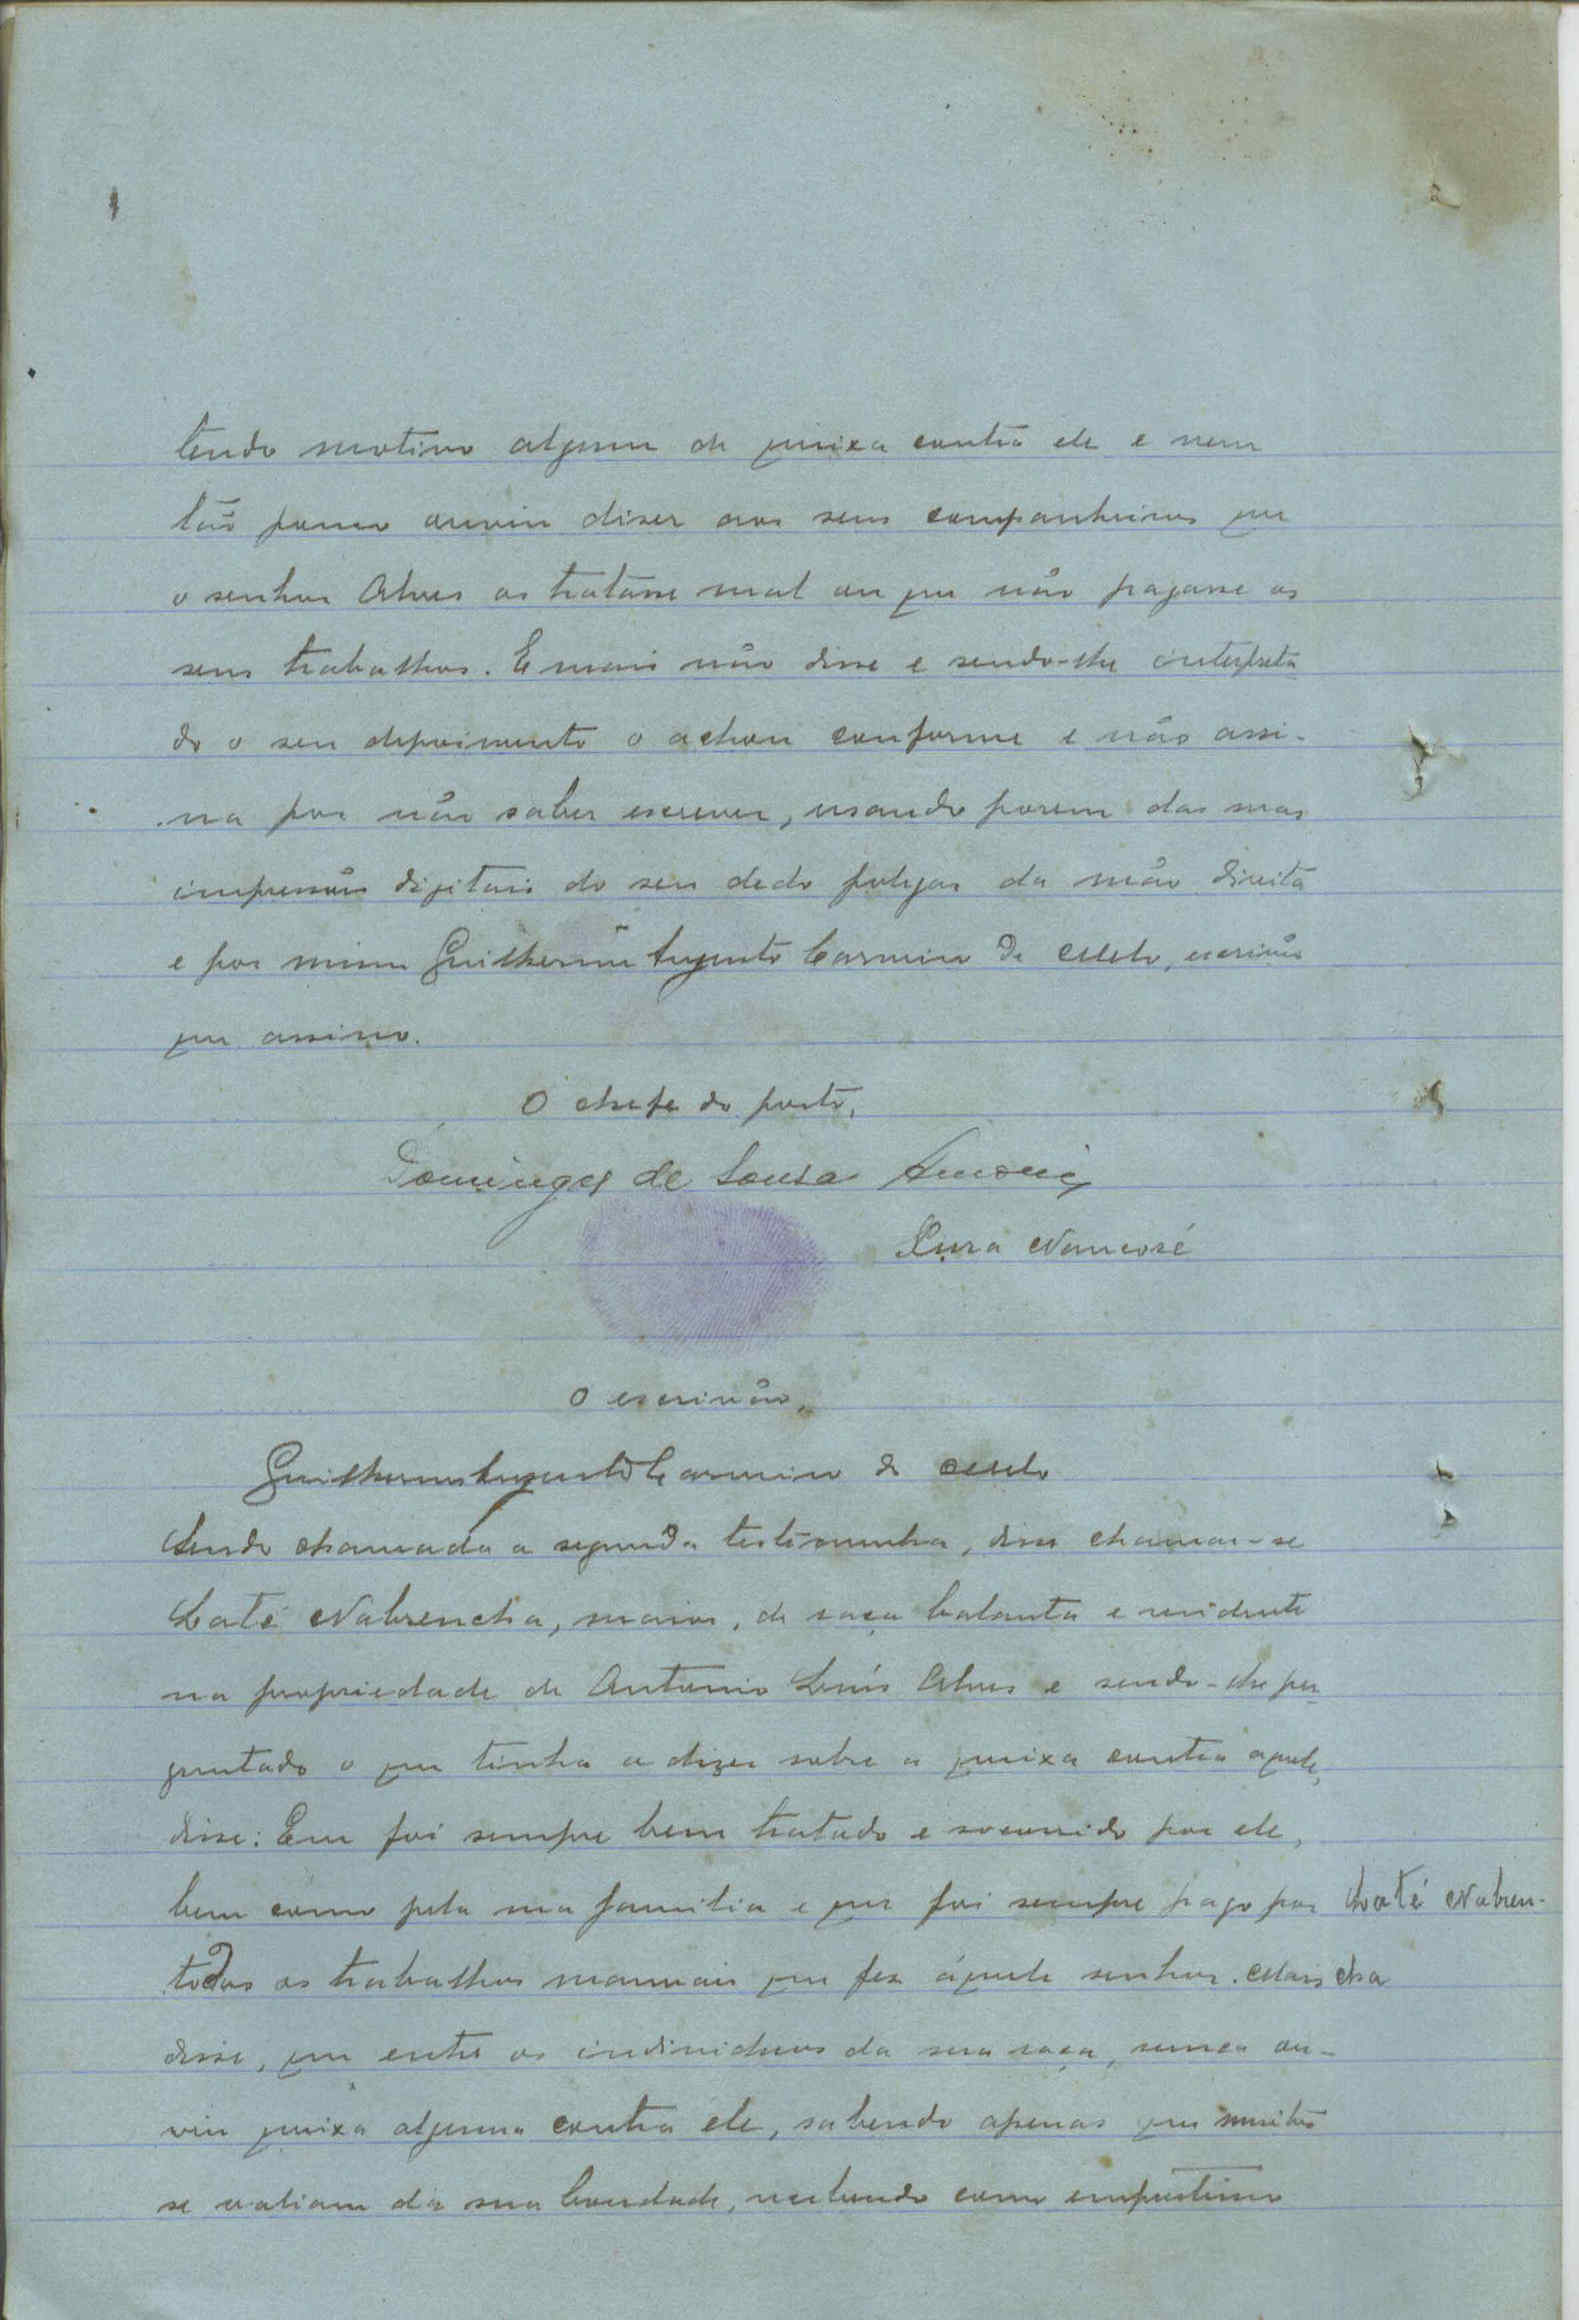 tendo motivo algum de queixa contra ele e nem
tão pouco ouviu diser aos seus companheiros que
o senhor Alves os tratasse mal ou que não pagasse os
seus trabalhos. E mais não disse e sendo-lhe interpreta
do o seu depoimento o achou conforme e não assi-
na por não saber escrever, usando porem das suas
impressões digitais do seu dedo polegar da mão direita
e por mim Guilherme Augusto Carmino de Melo, escrivão
que assino.
O chefe do posto,
Domingos de Sousa
Nancoré
O escrivão,
Guilherme Augusto Carmino de Melo
Sendo chamada a segunda testemunha, disse chamar-se
Laté Nabrencha, maior, de raça balanta e residente
na propriedade de Antonio Luís Alves e sendo-lhe per
guntado o que tinha a dizer sobre a queixa contra aquele,
disse: Que foi sempre bem tratado e socorrido por ele,
bem como pela sua familia e que foi sempre pago por
Laté Nabren-
todos os trabalhos manuais que fez áquele senhor. Mais
cha
disse, que entre os individuos da sua raça, nunca ou-
viu queixa alguma contra ele, sabendo apenas que muitos
se valiam da sua bondade, recebendo como emprestimo